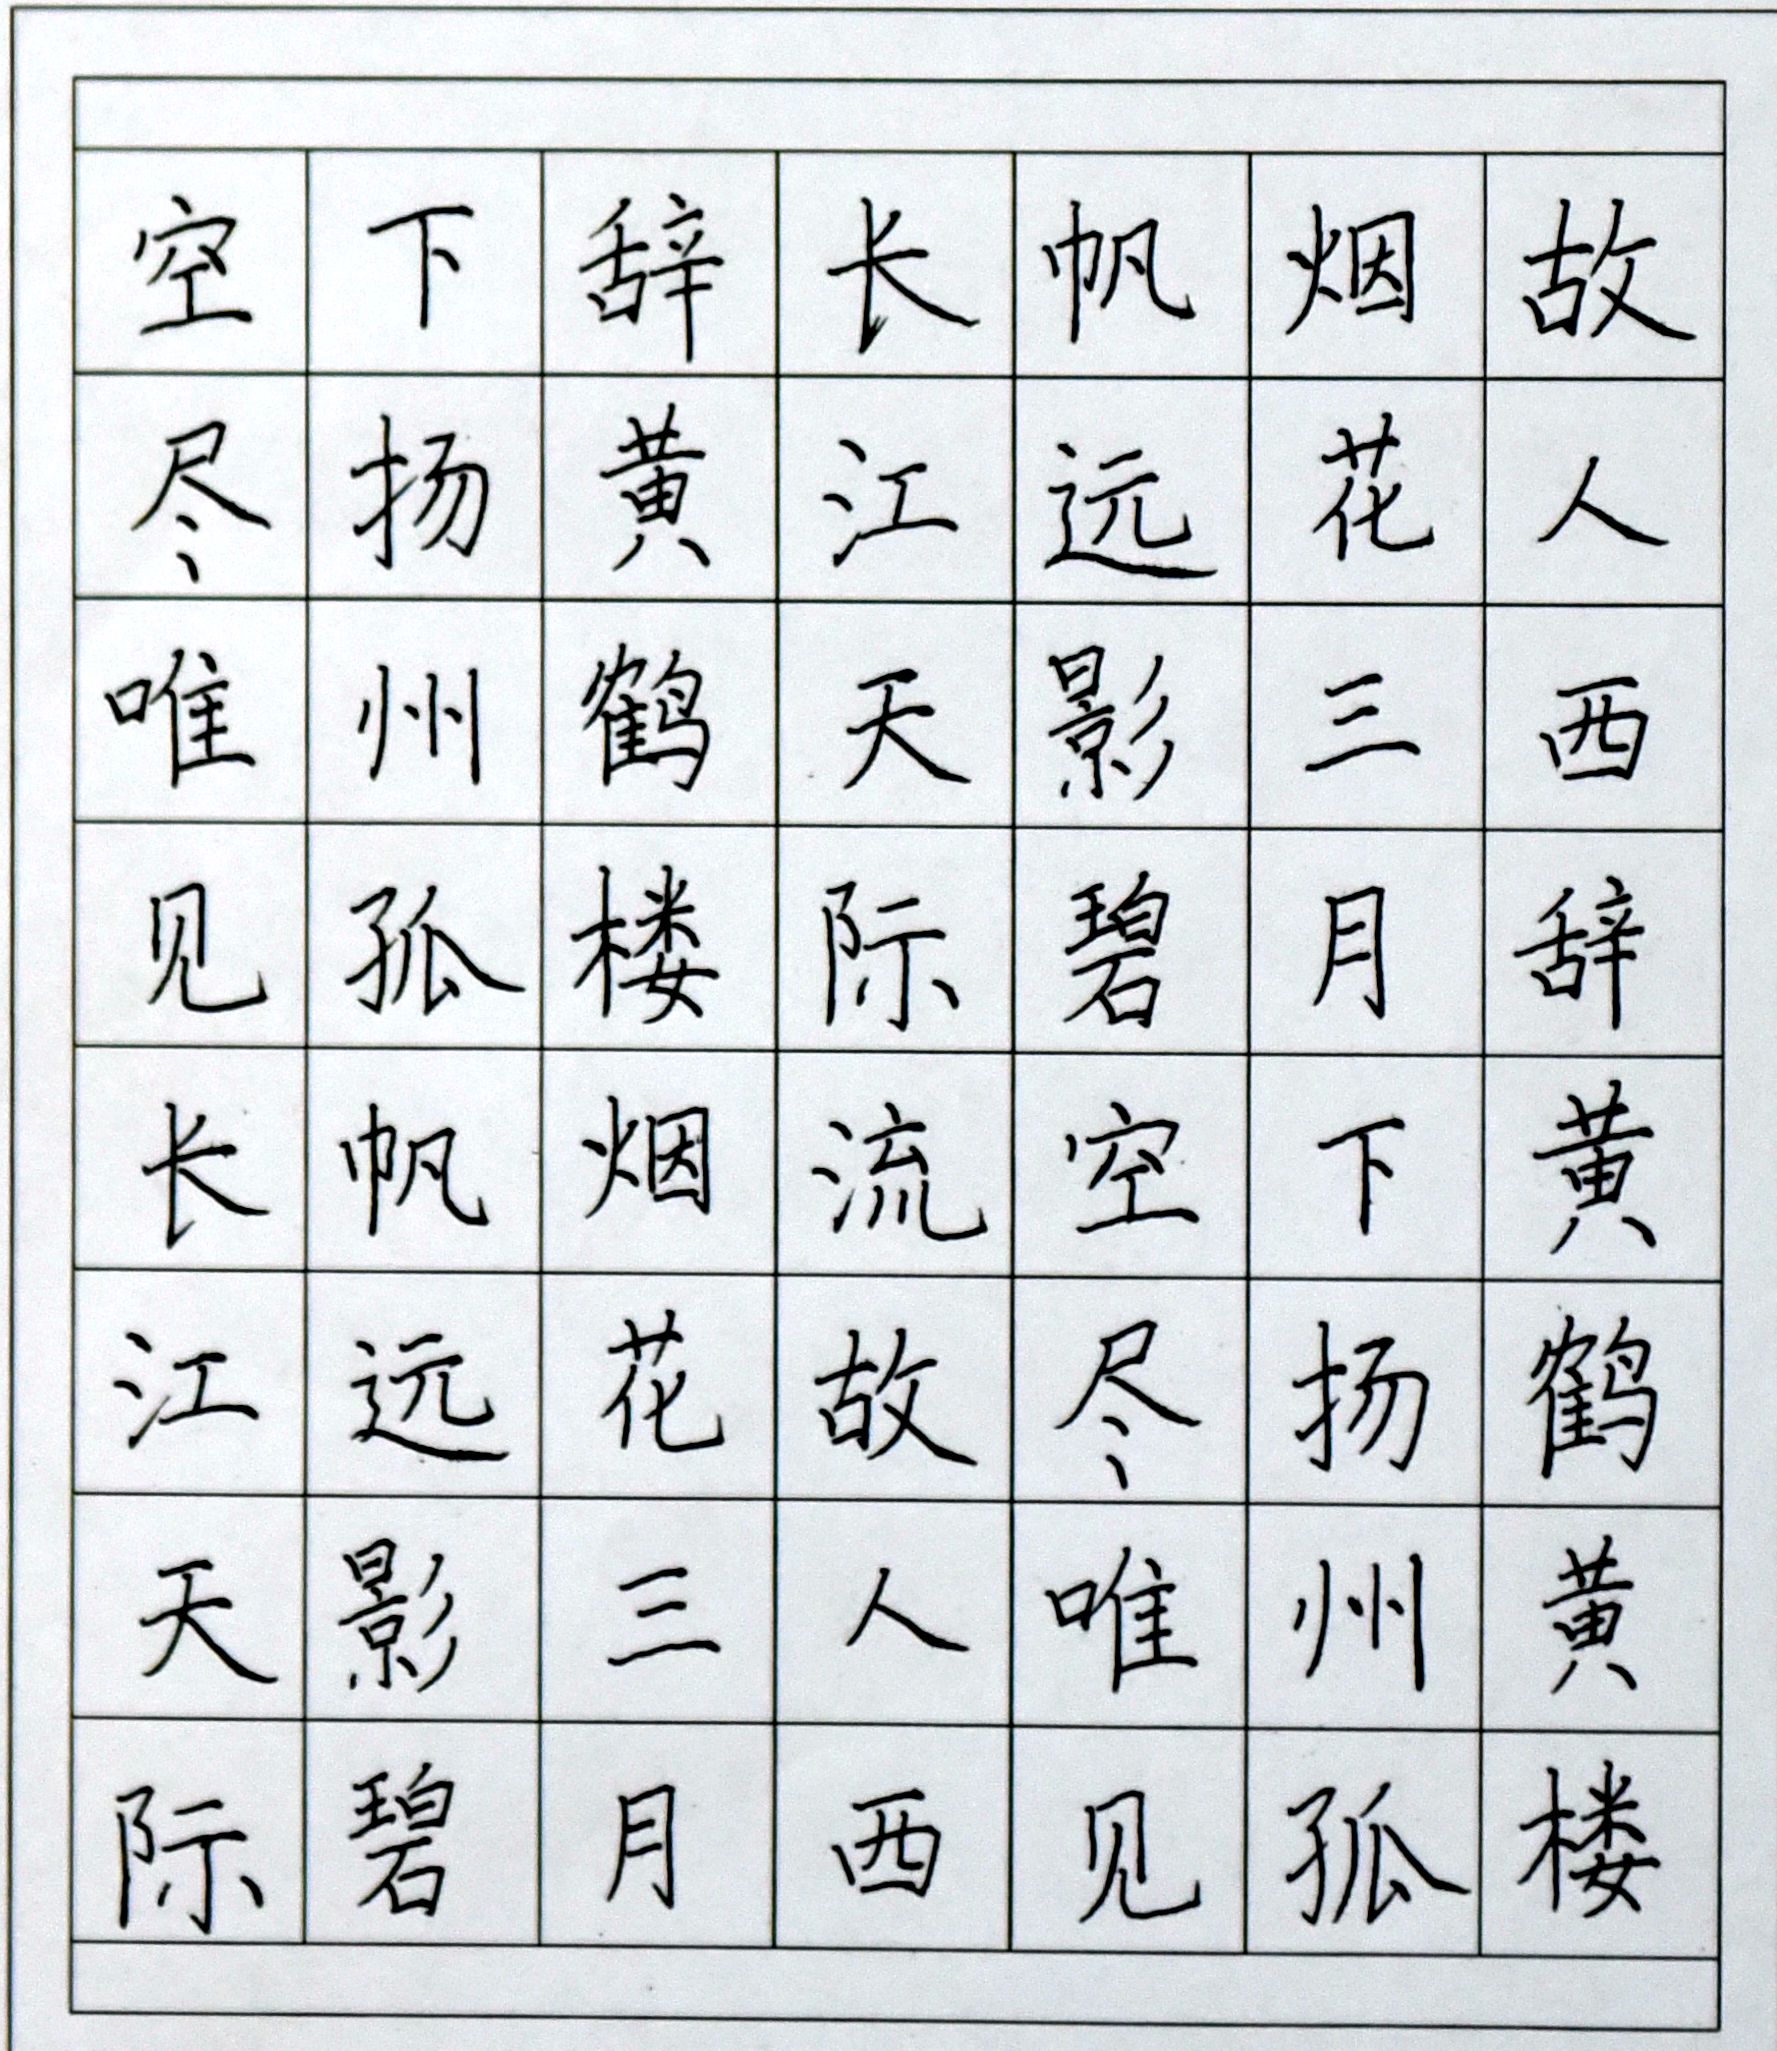 故人西辞黄鹤黄楼
烟花三月下扬州孤
帆远影碧空尽唯见
长江天际流故人西
辞黄鹤楼烟花三月
下扬州孤帆远影碧
空尽唯见长江天际